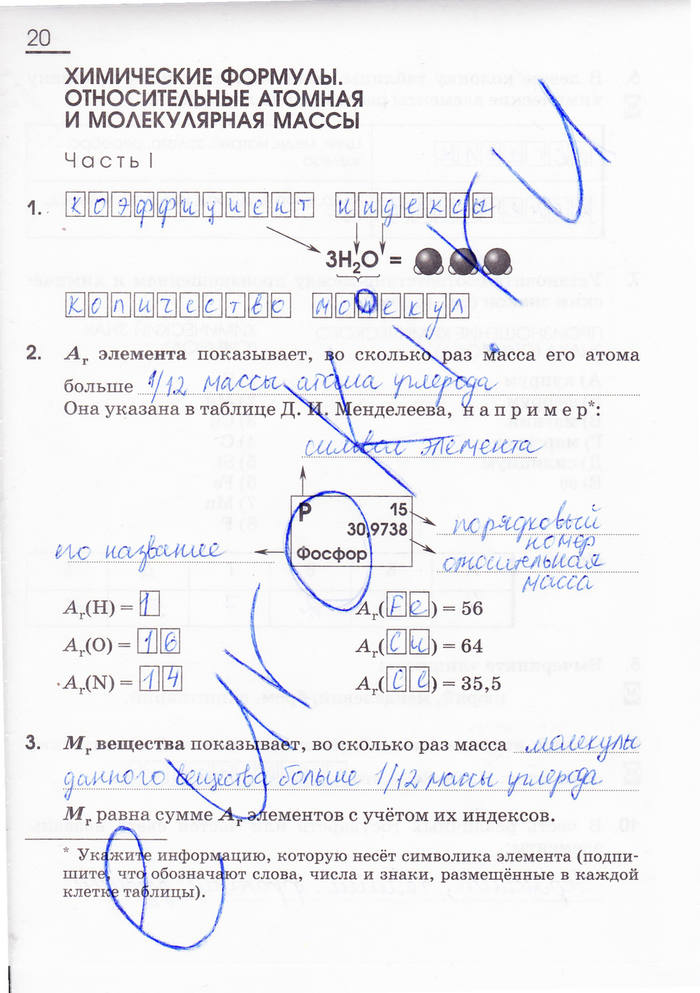 20
ХИМИЧЕСКИЕ ФОРМУЛЫ.
ОТНОСИТЕЛЬНЫЕ АТОМНАЯ
И МОЛЕКУЛЯРНАЯ МАССЫ
Часть I
1. коэффициент индексы
3H₂O =
количество молекул
2. Aᵣ элемента показывает, во сколько раз масса его атома
больше 1/12 массы атома углерода
Она указана в таблице Д. И. Менделеева, например*:
символ элемента
P 15
30,9738
Фосфор
порядковый
номер
его название
относительная
масса
Aᵣ(H) = 1 Aᵣ(Fe) = 56
Aᵣ(O) = 16 Aᵣ(Cu) = 64
Aᵣ(N) = 14 Aᵣ(Cl) = 35,5
3. Mᵣ вещества показывает, во сколько раз масса молекулы
данного вещества больше 1/12 массы углерода
Mᵣ равна сумме Aᵣ элементов с учётом их индексов.
* Укажите информацию, которую несёт символика элемента (подпи-
шите, что обозначают слова, числа и знаки, размещённые в каждой
клетке таблицы).